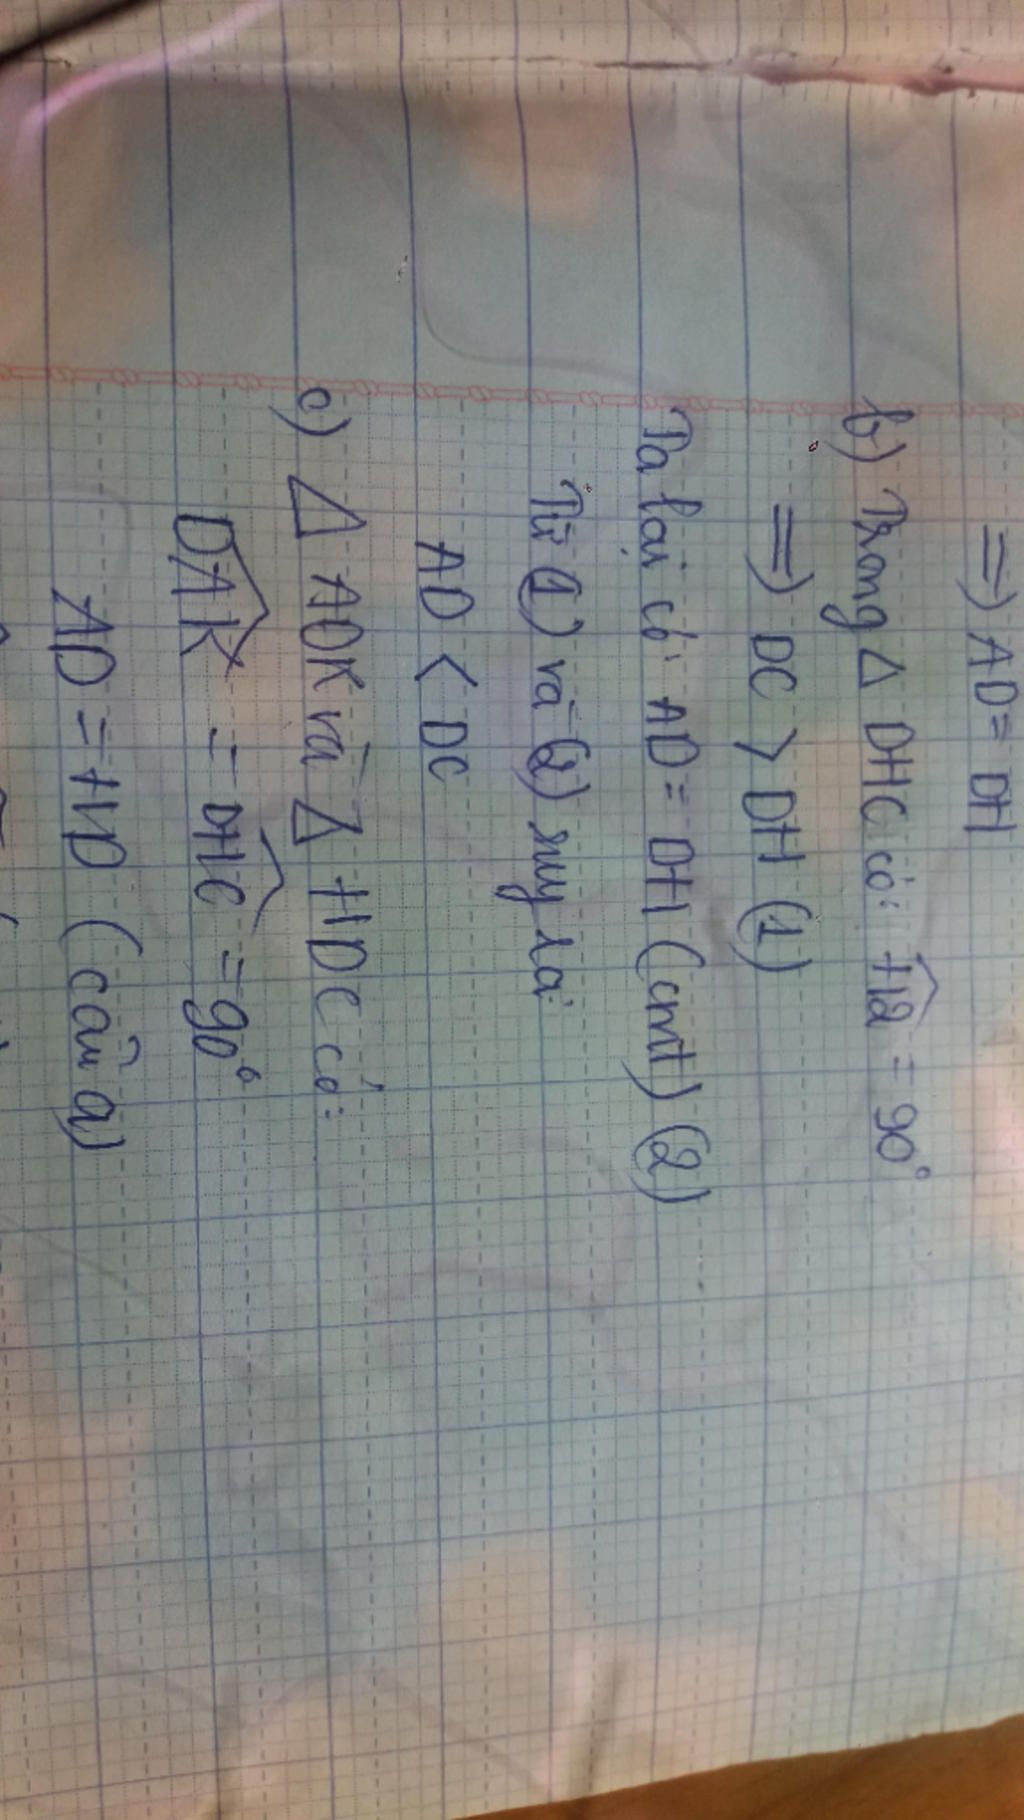 => AD = DH
b) Trong Δ DHC có: Ĥ2 = 90°
=> DC > DH (1)
Ta lại có: AD = DH (cmt) (2)
Từ (1) và (2) suy ra:
AD < DC
c) Δ ADK và Δ HDC có:
DAK = DHC = 90°
AD = HD (câu a)